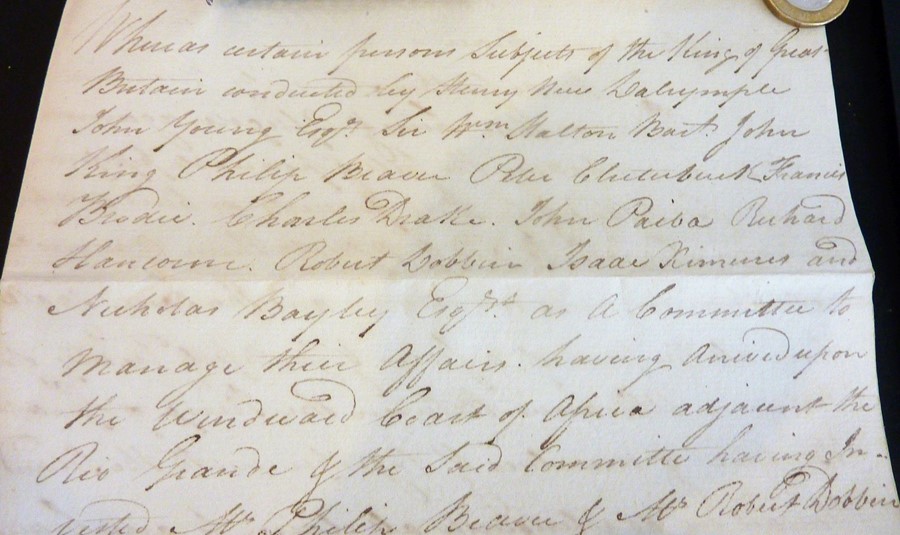 Whereas certain persons Subjects of the King of Great
Britain conducted by Henry Hew Dalrymple
John Young Esqr. Sir Wm. Halton Bart. John
King Philip Beaver Peter Clutterbuck Francis
Brodie. Charles Drake. John Paiba Richard
Hancorne. Robert Dobbin Isaac Ximenes and
Nicholas Bayley Esqrs. as a Committee to
manage their Affairs. having Arrived upon
the Windward Coast of Africa adjacent the
Rio Grande & the Said Committee having In-
vested Mr. Philip Beaver & Mr. Robert Dobbin